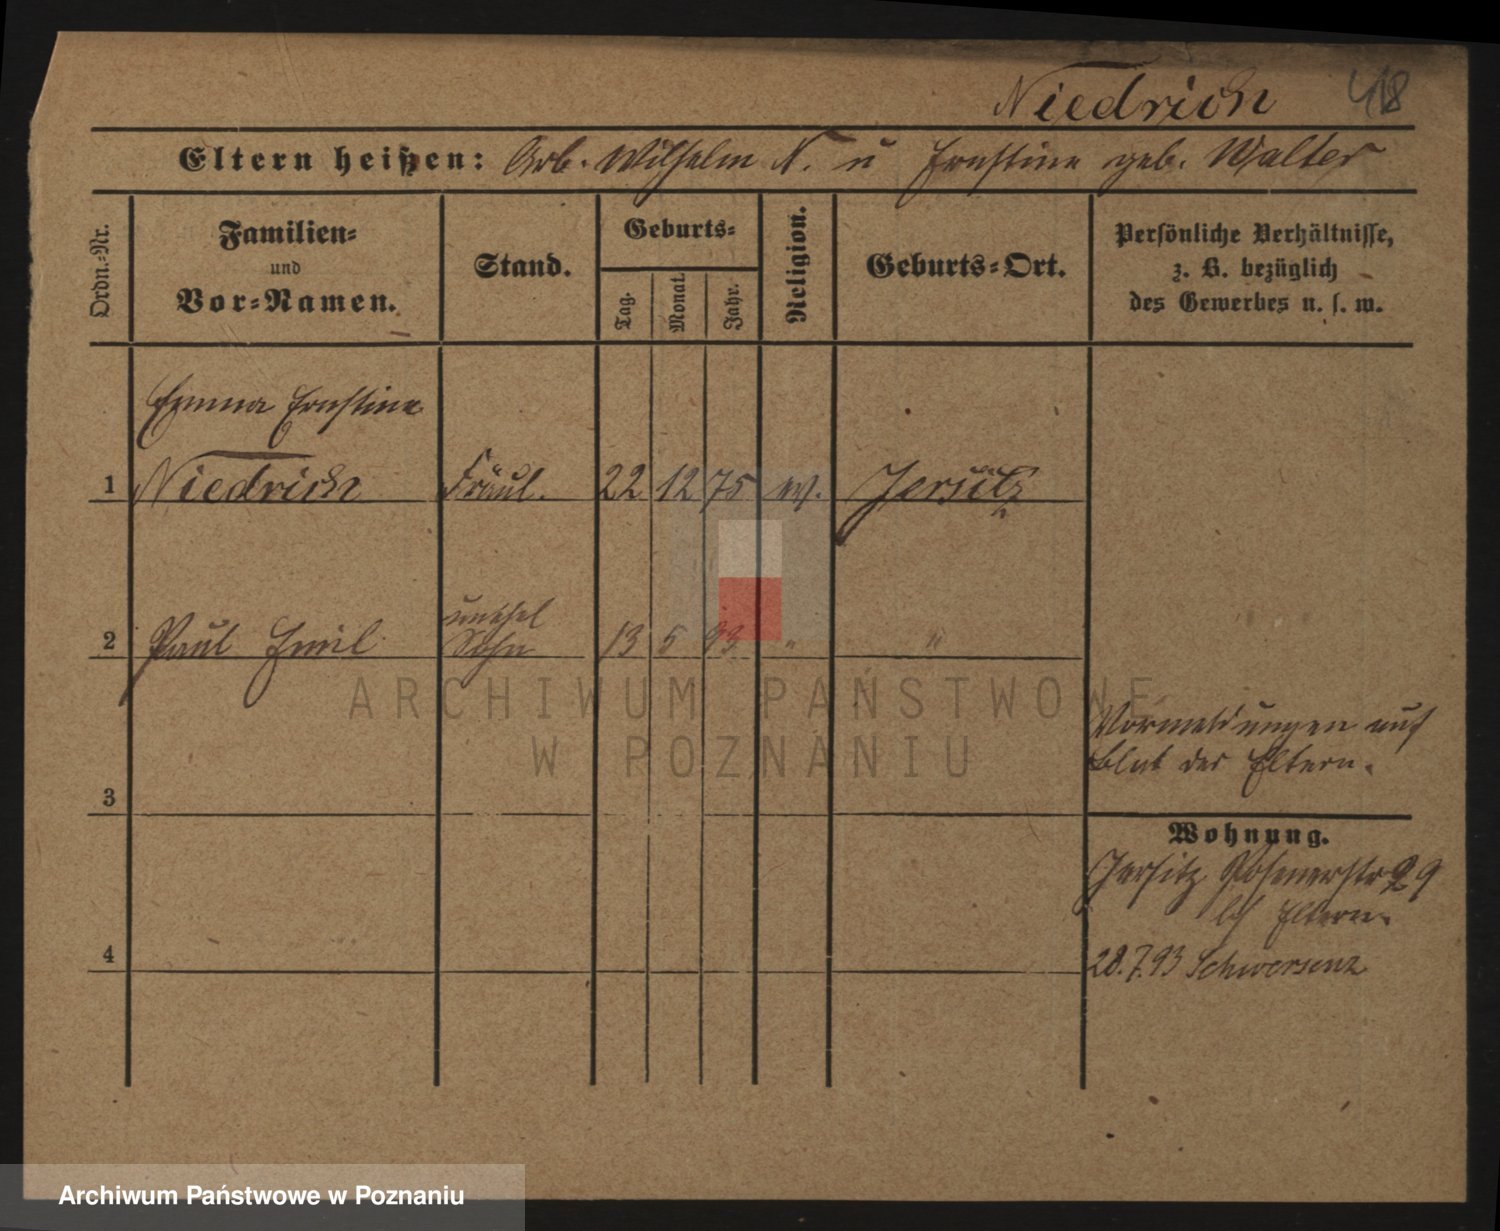 Niedrich 418
Eltern heißen: Arb. Wilhelm N. u Ernstine geb. Walter
Ordn.-Nr.
Familien-
und
Vor-Namen.
Stand.
Geburts-
Tag.
Monat.
Jahr.
Religion.
Geburts-Ort.
Persönliche Verhältnisse,
z. B. bezüglich
des Gewerbes u. s. w.
Emma Ernstine
1 Niedrich Fräul. 22 12 75 ev. Jersitz
unehel
2 Paul Emil Sohn 13 5 93 " "
ARCHIWUM PAŃSTWOWE
W POZNANIU
Vormeldungen auf
Blat der Eltern.
3
Wohnung.
Jersitz Posenerstr 29
bei Eltern.
4
28.7.93 Schwersenz
Archiwum Państwowe w Poznaniu